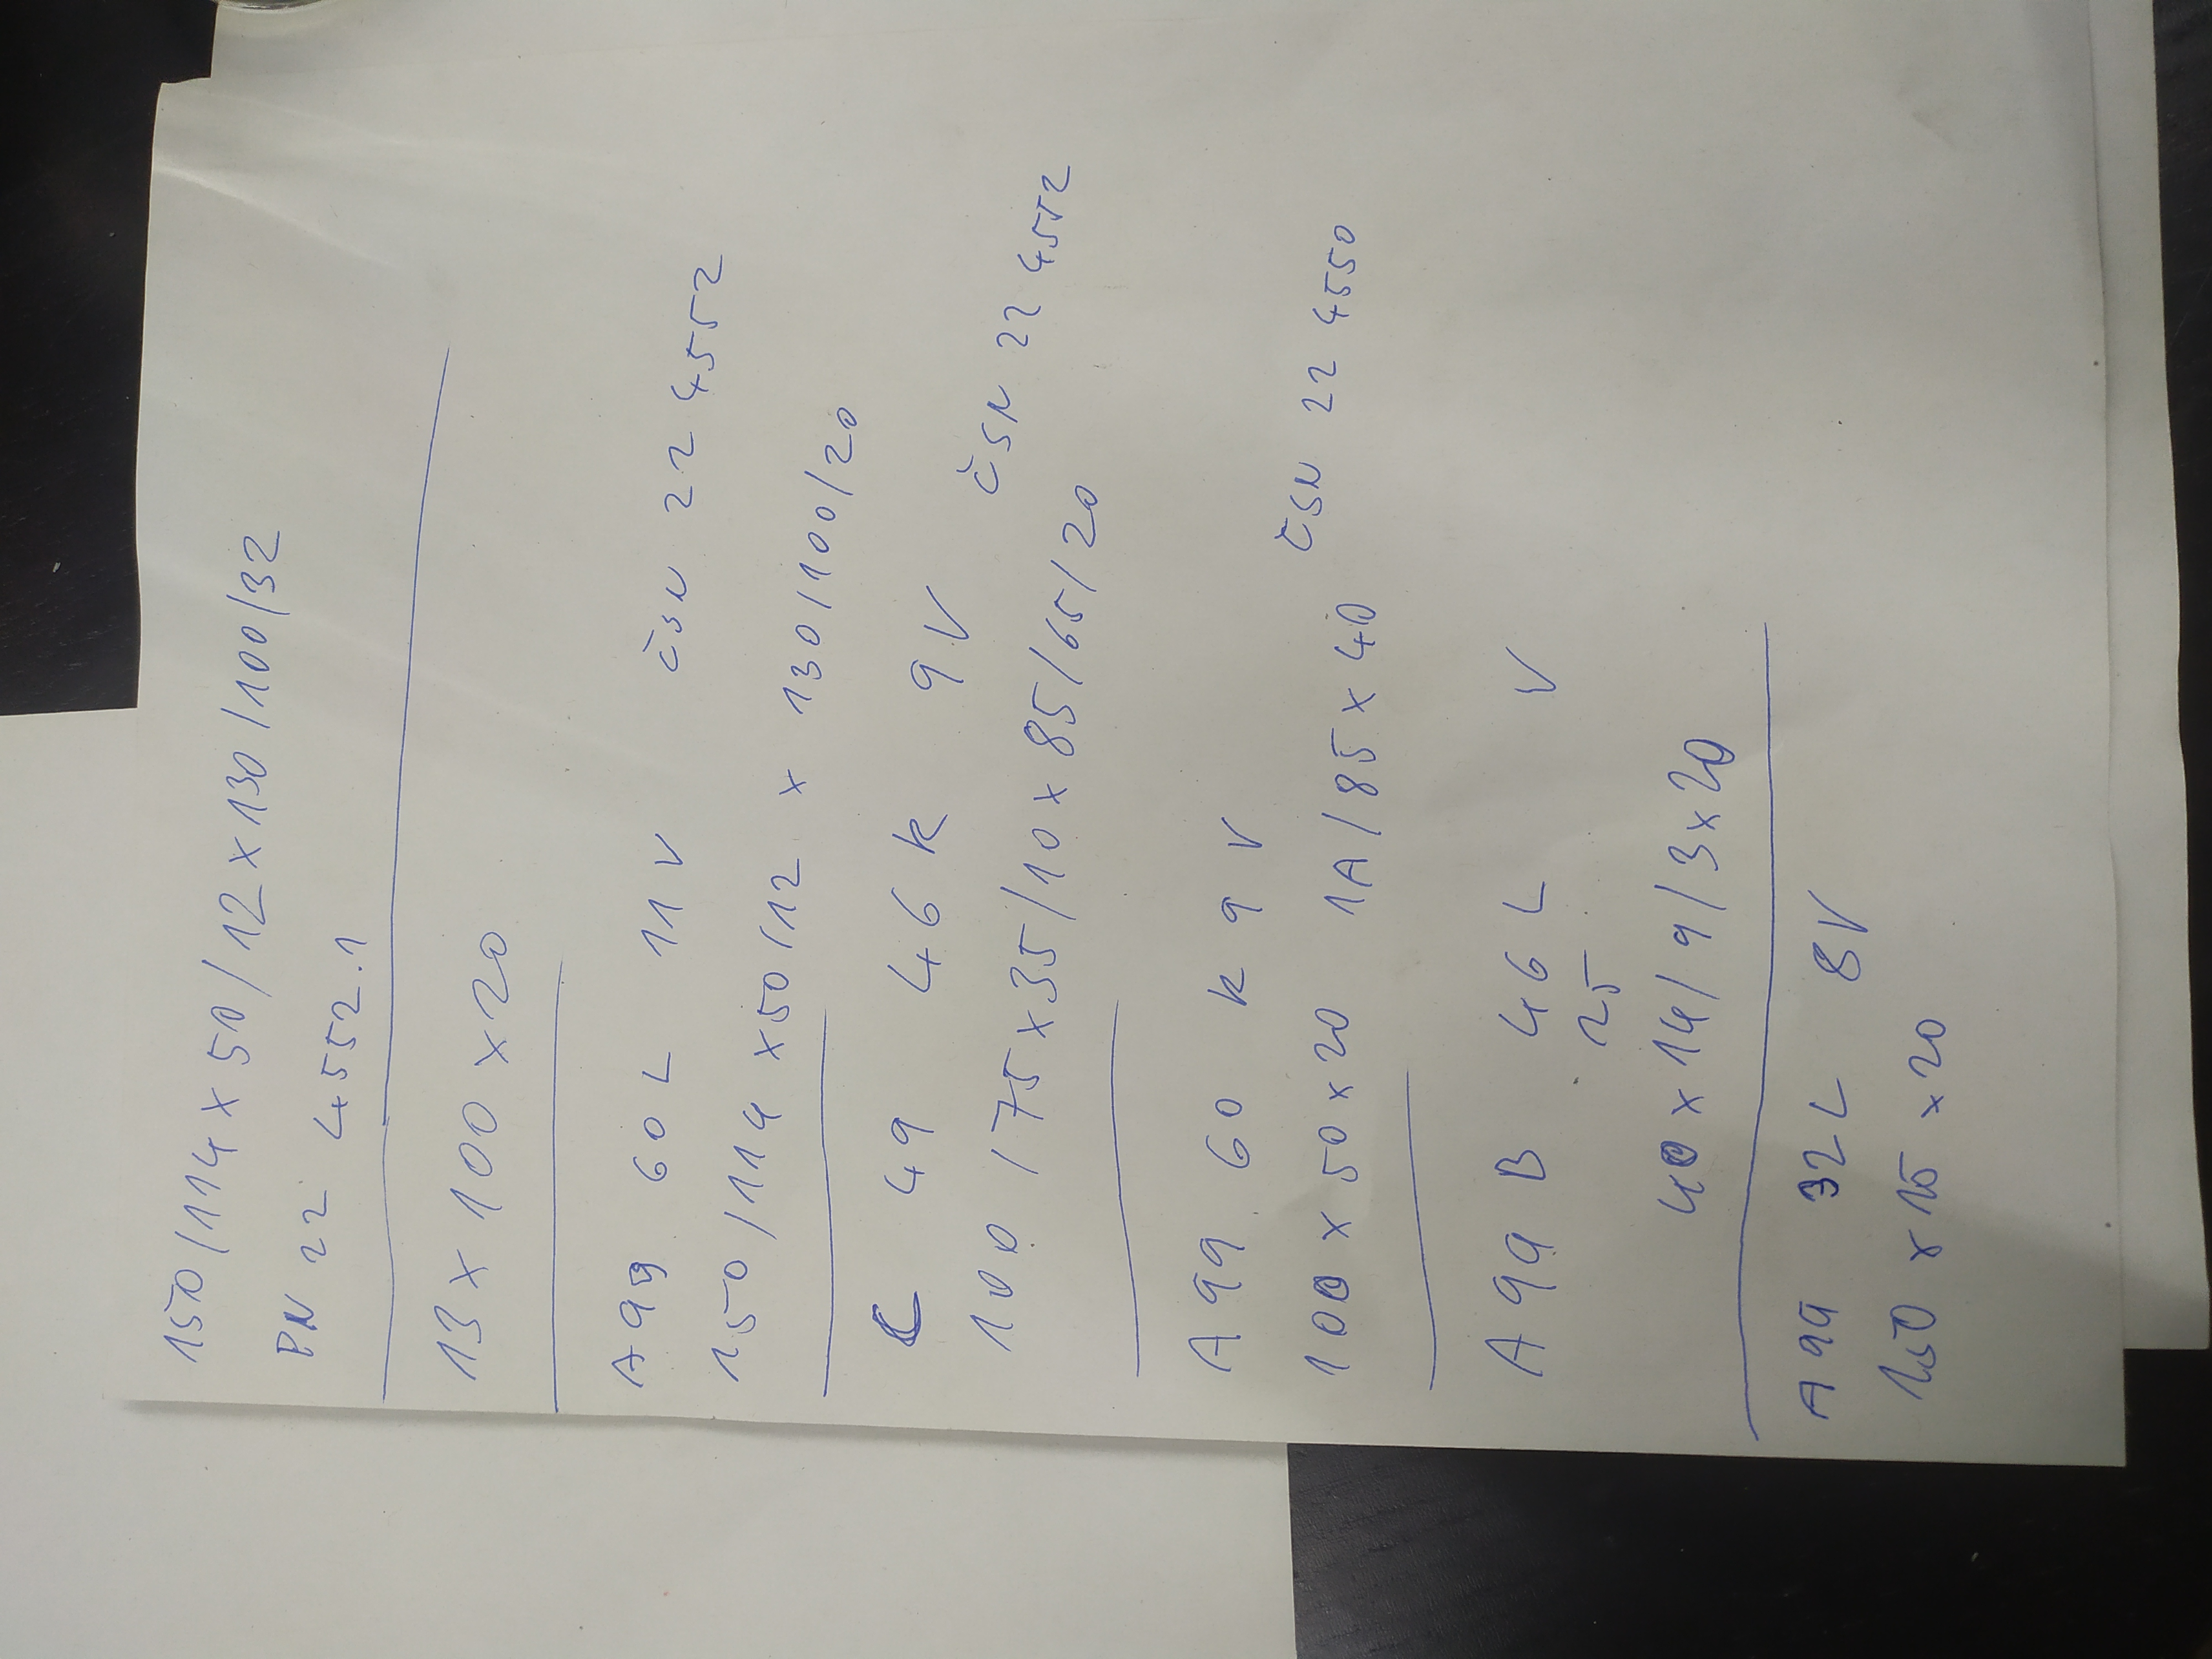 150/114x50/12x130/100/32
PN 22 4552.1
13x100x20
A99 60L 11V ČSN 22 4552
150/114x50/12 x 130/100/20
C 49 46K 9V ČSN 22 4552
100/75x35/10x85/65/20
A99 60 K 9V ČSN 22 4550
100x50x20 1A/85x40
A99B 46L V
25
40x14/9/3x20
A99 32L 8V
150x15x20